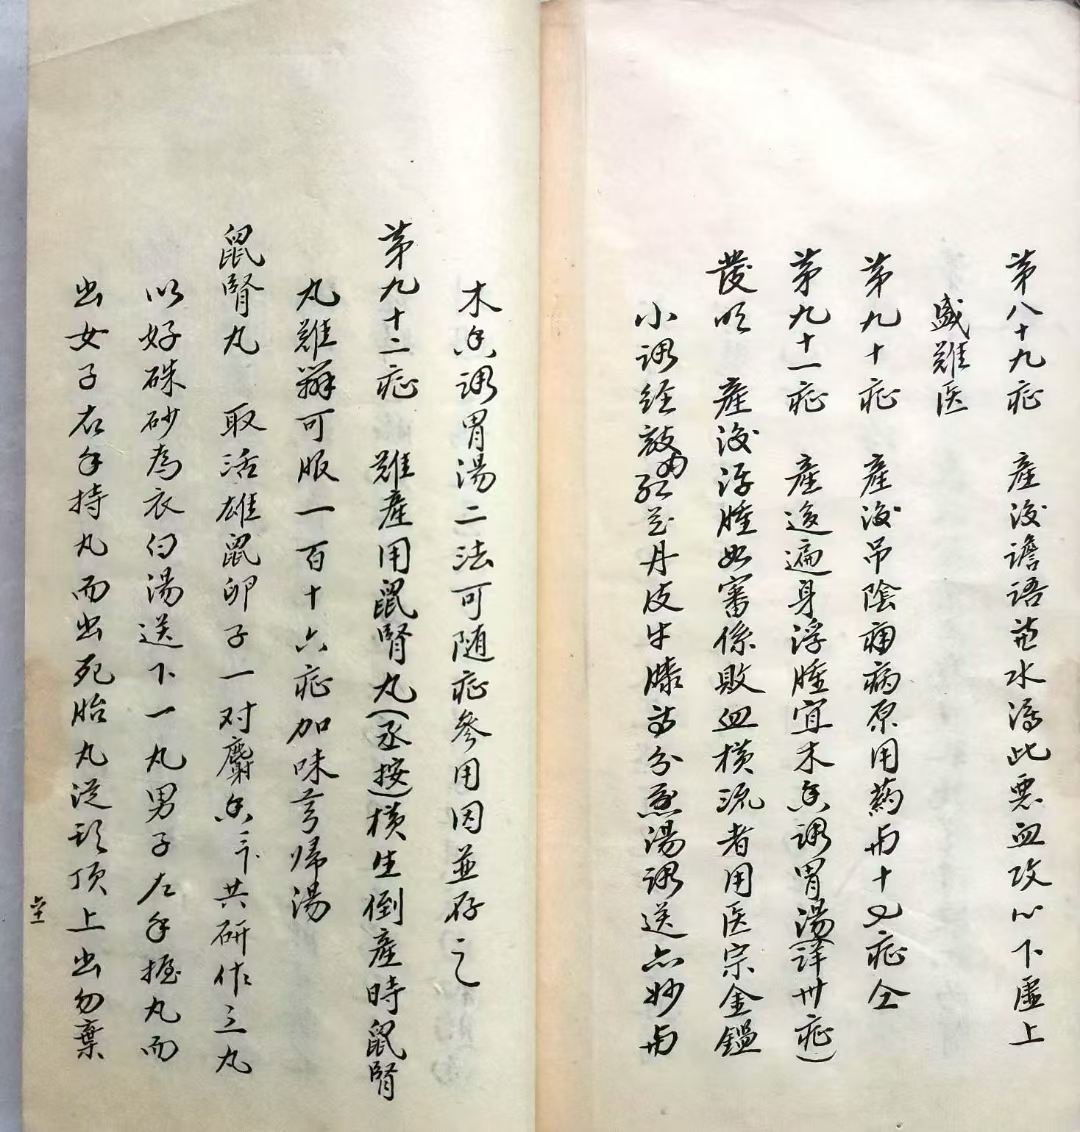 第八十九症　產後譫語苔水滑此悪血攻心下虛上
盛難医
第九十症　產後吊陰痛病原用藥与十四症仝
第九十一症　產後遍身浮腫宜木香調胃湯(詳卅症)
發明　產後浮腫如審係敗血橫流者用医宗金鑑
小調經散內紅花丹皮牛膝等分煎湯調送亦妙与
木香調胃湯二法可随症參用因並存之
第九十二症　難產用鼠腎丸(丞按)橫生倒產時鼠腎
丸難辦可服一百十六症加味芎帰湯
鼠腎丸　取活雄鼠卵子一对麝香三下共研作三丸
以好硃砂為衣白湯送下一丸男子左手握丸而
出女子右手持丸而出死胎丸從頭頂上出勿棄